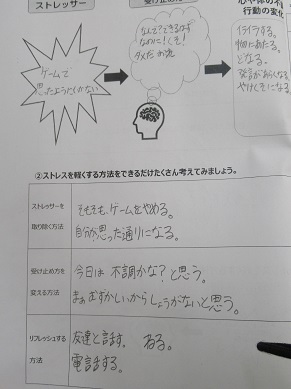 ストレッサー
受け止め方
心や体の不
行動の変化
ゲームで
思ったようにいかない
なんで?できるはず
なのに!くそ!
ダメだ俺
イライラする。
物にあたる。
どなる。
発言があらくなる
やけくそになる。
②ストレスを軽くする方法をできるだけたくさん考えてみましょう。
ストレッサーを
取り除く方法
そもそも、ゲームをやめる。
自分が思った通りになる。
受け止め方を
変える方法
今日は不調かな?と思う。
まぁむずかしいからしょうがないと思う。
リフレッシュする
方法
友達と話す。 ねる。
電話する。